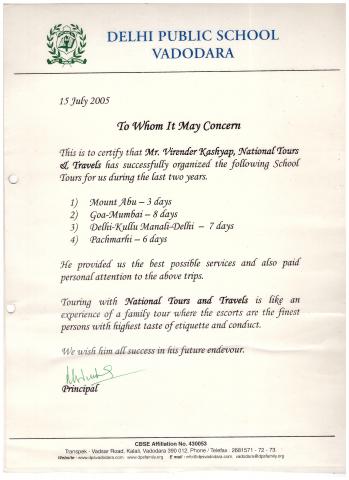 DELHI PUBLIC SCHOOL
VADODARA
15 July 2005
To Whom It May Concern
This is to certify that Mr. Virender Kashyap, National Tours
& Travels has successfully organized the following School
Tours for us during the last two years.
1) Mount Abu – 3 days
2) Goa-Mumbai – 8 days
3) Delhi-Kullu Manali-Delhi – 7 days
4) Pachmarhi – 6 days
He provided us the best possible services and also paid
personal attention to the above trips.
Touring with National Tours and Travels is like an
experience of a family tour where the escorts are the finest
persons with highest taste of etiquette and conduct.
We wish him all success in his future endevour.
Principal
CBSE Affiliation No. 430053
Transpek - Vadsar Road, Kalali, Vadodara 390 012, Phone / Telefax : 2681571 - 72 - 73.
Website : www.dpsvadodara.com www.dpsfamily.org E mail : info@dpsvadodara.com vadodara@dpsfamily.org